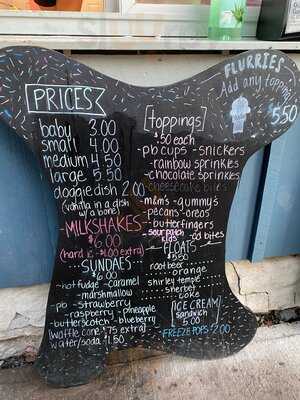 PRICES
baby 3.00
small 4.00
medium 4.50
large 5.50
doggie dish 2.00
(vanilla in a dish
w/ a bone)
MILKSHAKES
$6.00
(hard ic - $1.00 extra)
SUNDAES
$6.00
-hot fudge -caramel
-marshmallow
-pb -strawberry
-raspberry -pineapple
-butterscotch -blueberry
(waffle cone $.75 extra)
water/soda 1.50
FLURRIES
Add any topping
5.50
[toppings]
$.50 each
-pb cups -snickers
-rainbow sprinkles
-chocolate sprinkles
-cheesecake bites
-m&m's -gummys
-pecans -oreos
-butterfingers
-sour patch kids
bites
FLOATS
5.50
root beer
orange
shirley temple
sherbet
coke
ICE CREAM
sandwich
5.00
FREEZE POPS 2.00